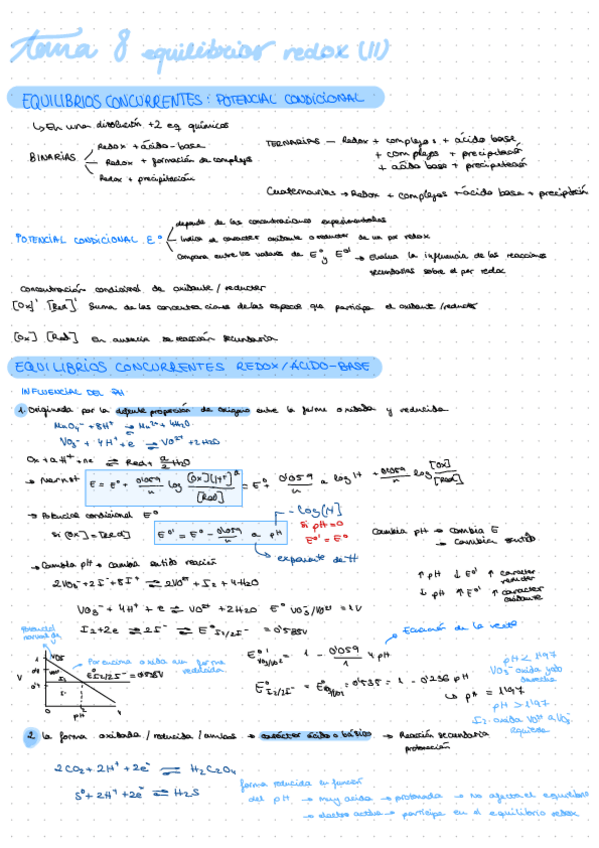 tema 8 equilibrios redox (II)
EQUILIBRIOS CONCURRENTES: POTENCIAL CONDICIONAL
↳ En una disolución +2 eq químicos
BINARIAS
Redox + ácido-base
Redox + formación de complejos
Redox + precipitación
TERNARIAS — Redox + complejos + ácido base
+ complejos + precipitación
+ ácido base + precipitación
Cuaternarias → Redox + complejos + ácido base + precipitación
POTENCIAL CONDICIONAL E°'
depende de las concentraciones experimentales
Indica el caracter oxidante o reductor de un par redox
Compara entre los valores de E° y E°' → Evalua la influencia de las reacciones
secundarias sobre el par redox
Concentración condicional de oxidante / reductor
[Ox]' [Red]' Suma de las concentraciones de las especies que participa el oxidante/reductor
[Ox] [Red] En ausencia de reacción secundaria
EQUILIBRIOS CONCURRENTES REDOX/ÁCIDO-BASE
INFLUENCIAL DEL PH
1. Originada por la diferente proporción de oxígeno entre la forma oxidada y reducida
MnO4⁻ + 8H⁺ ⇌ Mn²⁺ + 4H2O
VO3⁻ + 4H⁺ + e ⇌ VO²⁺ + 2H2O
Ox + aH⁺ + ne ⇌ Red + a/2 H2O
→ Nernst E = E° + 0'059/n log [Ox][H⁺]ᵃ/[Red] = E° + 0'059/n a log H + 0'059/n log [Ox]/[Red]
→ Potencial condicional E°'
Si [Ox] = [Red] E°' = E° - 0'059/n a pH
- log[H]
Si pH=0
E°' = E°
exponente de H
Cambia pH → cambia E
→ Cambia sentido
→ Cambia pH → cambia sentido reacción
2VO3⁻ + 2I⁻ + 8H⁺ ⇌ 2VO²⁺ + I2 + 4H2O
↑ pH ↓ E°' ↑ caracter reductor
↓ pH ↑ E°' ↑ caracter oxidante
VO3⁻ + 4H⁺ + e ⇌ VO²⁺ + 2H2O E° VO3⁻/VO²⁺ = 1V
I2 + 2e ⇌ 2I⁻ ⇌ E° I2/2I⁻ = 0'535V
Ecuación de la recta
Potencial normal de V
VO3⁻
Por encima oxida en forma reducida
E I2/2I⁻ = 0'535V
I2
I⁻
V
pH
E°' VO3/VO2 = 1 - 0'059/1 4 pH
0'535 = 1 - 0'236 pH
↳ pH = 1'97
pH < 1'97
pH > 1'97
2 La forma oxidada / reducida / ambas → carácter ácido o básico → Reacción secundaria
protonación
2CO2 + 2H⁺ + 2e⁻ ⇌ H2C2O4
S° + 2H⁺ + 2e⁻ ⇌ H2S
forma reducida en función
del pH → muy acida → protonada → no afecta el equilibrio
→ participe en el equilibrio redox